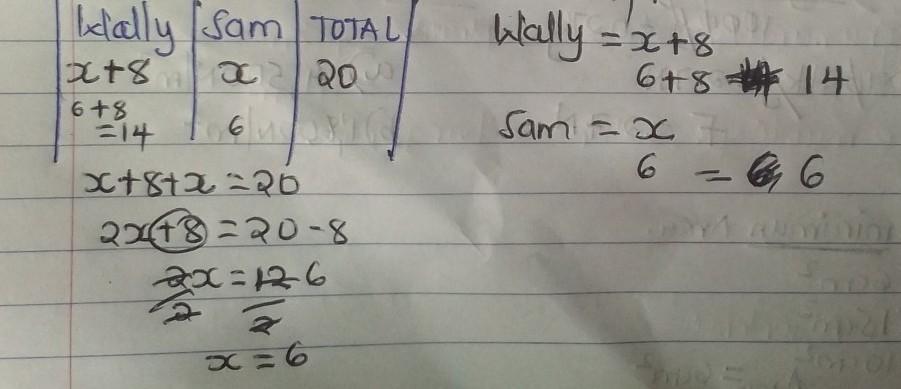 Wally Sam TOTAL
x+8 x 20
6+8
=14 6
x+8+x=20
2x+8=20-8
2x=12 6
2 2
x=6
Wally =x+8
6+8 14
Sam = x
6 = 6